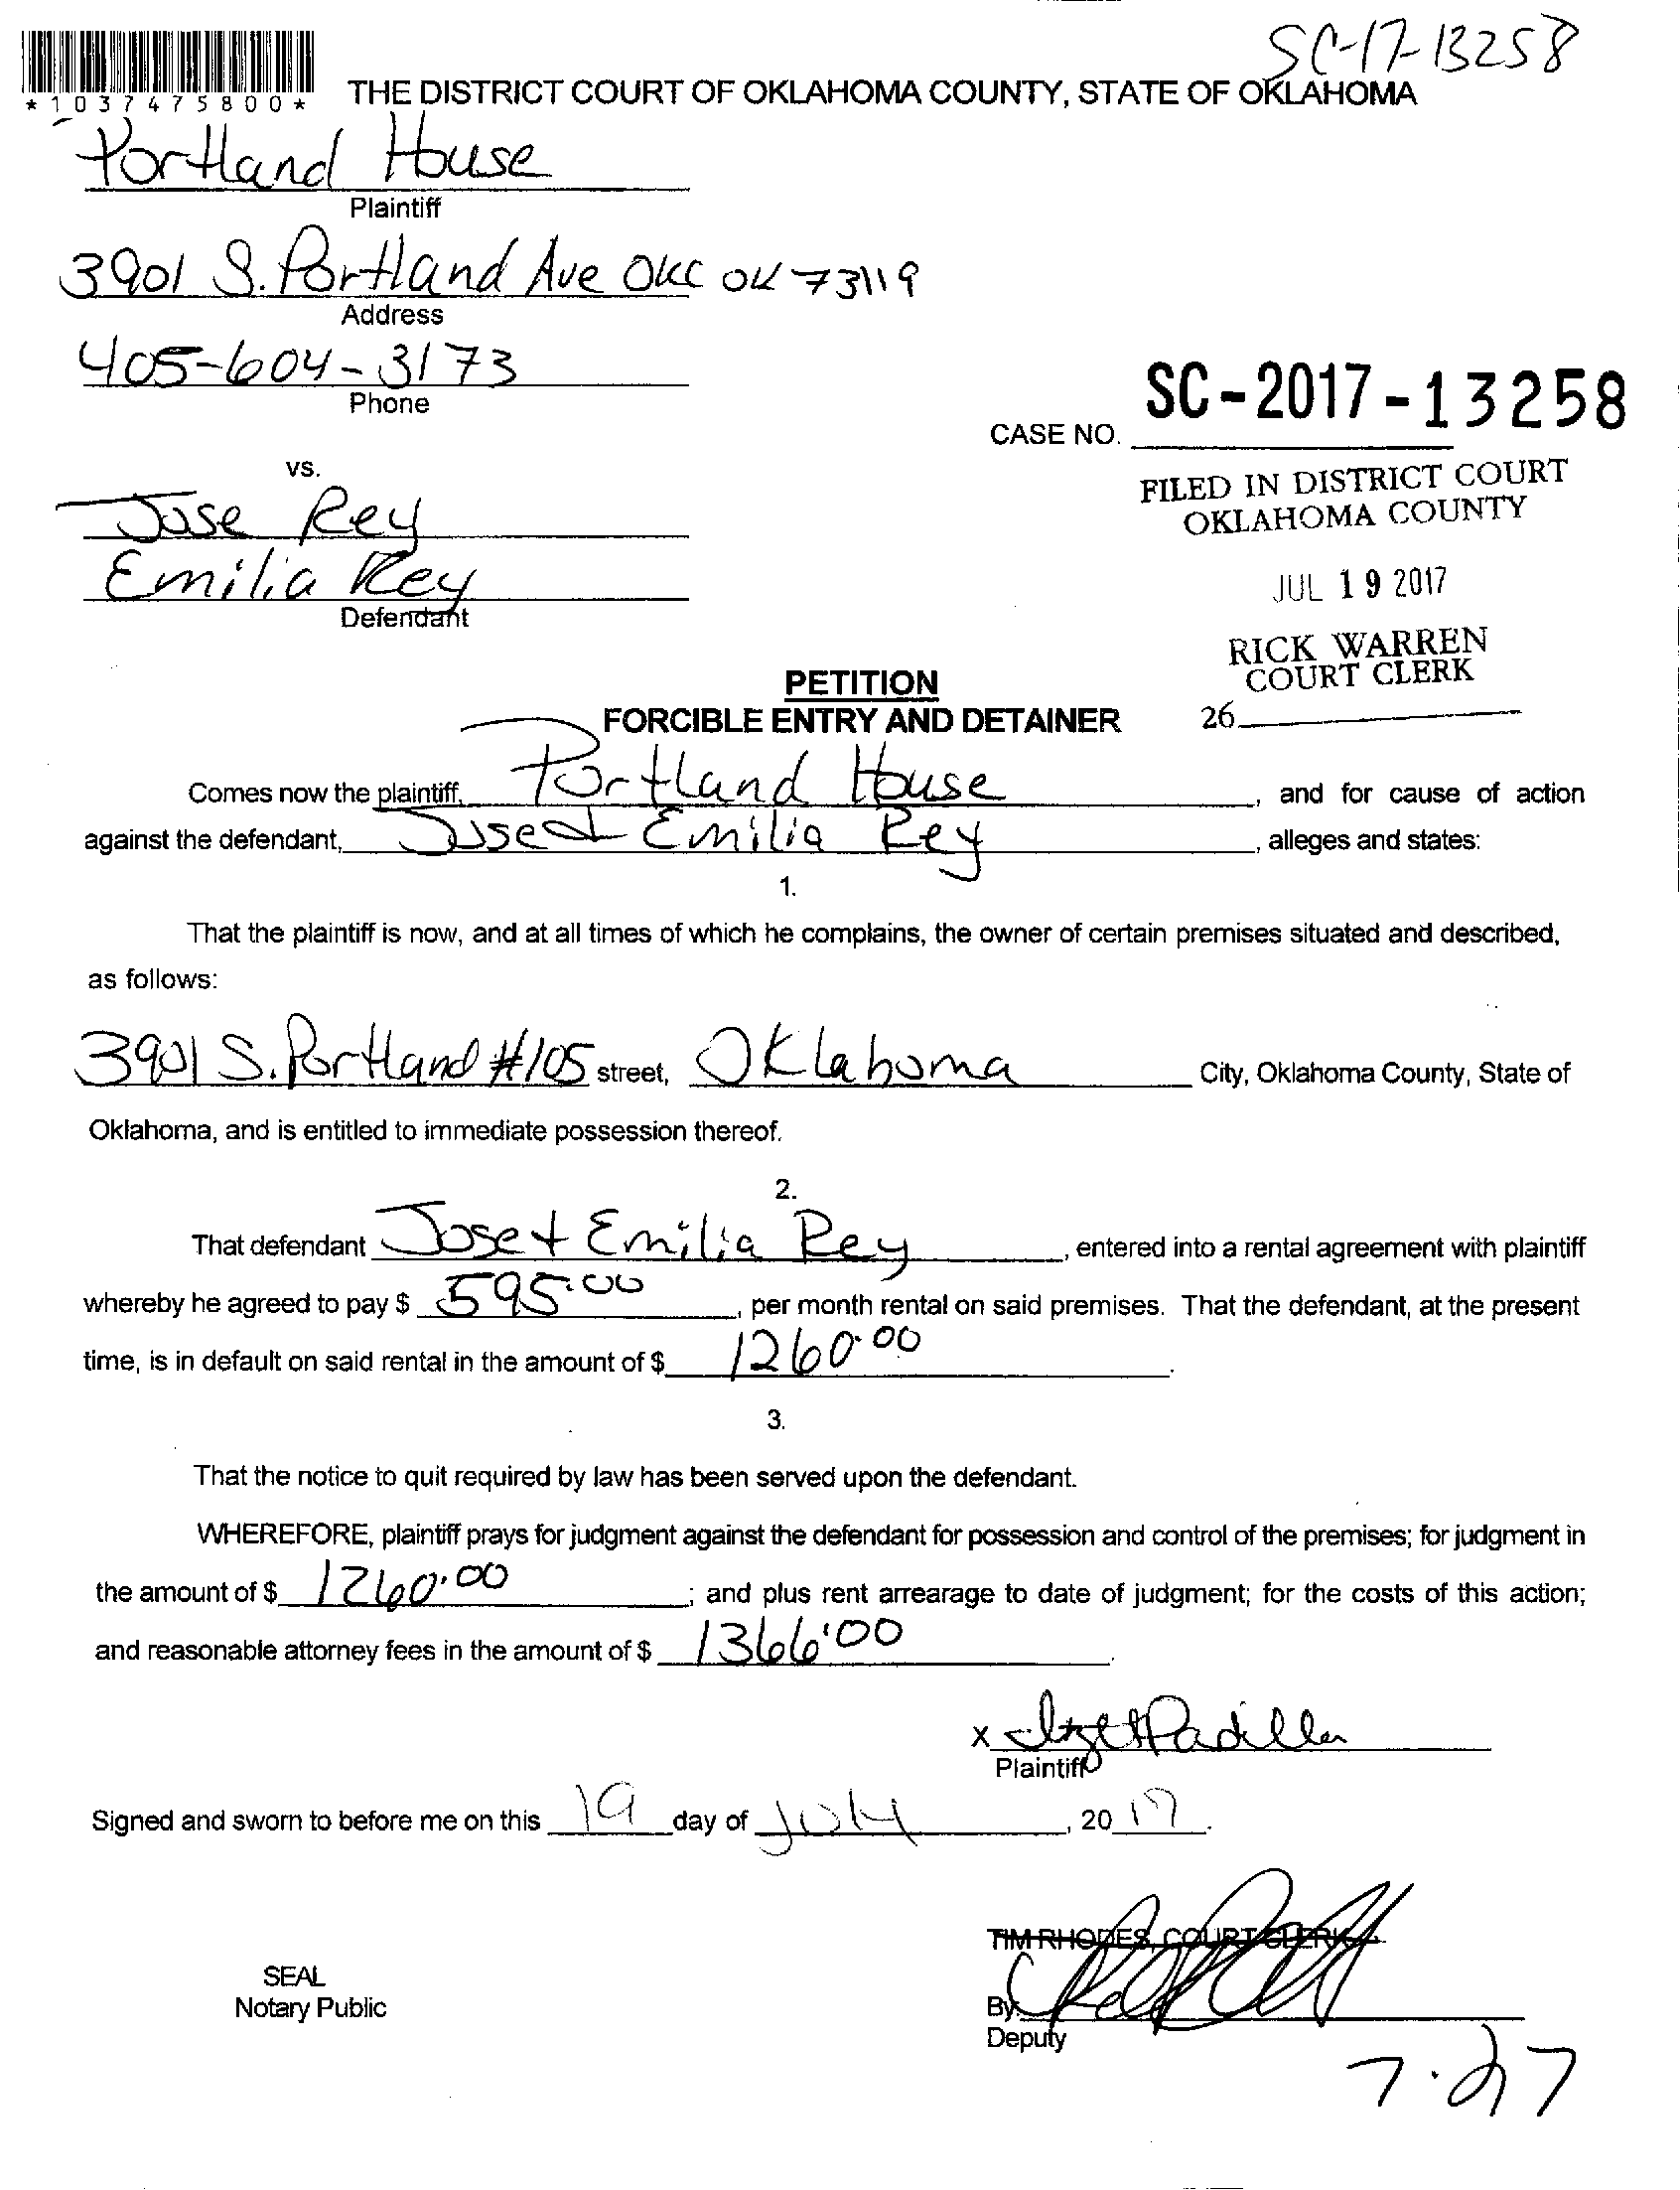 SC-17-13258
*1037475800*
THE DISTRICT COURT OF OKLAHOMA COUNTY, STATE OF OKLAHOMA
Portland House
Plaintiff
3901 S. Portland Ave OKC OK 73119
Address
405-604-3173
Phone
SC-2017-13258
CASE NO.
vs.
FILED IN DISTRICT COURT
OKLAHOMA COUNTY
Jose Rey
Emilia Rey
Defendant
JUL 19 2017
RICK WARREN
COURT CLERK
26
PETITION
FORCIBLE ENTRY AND DETAINER
Comes now the plaintiff, Portland House, and for cause of action
against the defendant, Jose + Emilia Rey, alleges and states:
1.
That the plaintiff is now, and at all times of which he complains, the owner of certain premises situated and described,
as follows:
3901 S. Portland #105 street, Oklahoma City, Oklahoma County, State of
Oklahoma, and is entitled to immediate possession thereof.
2.
That defendant Jose + Emilia Rey, entered into a rental agreement with plaintiff
whereby he agreed to pay $ 595.00, per month rental on said premises. That the defendant, at the present
time, is in default on said rental in the amount of $ 1260.00.
3.
That the notice to quit required by law has been served upon the defendant.
WHEREFORE, plaintiff prays for judgment against the defendant for possession and control of the premises; for judgment in
the amount of $ 1260.00; and plus rent arrearage to date of judgment; for the costs of this action;
and reasonable attorney fees in the amount of $ 1366.00.
x Padilla
Plaintiff
Signed and sworn to before me on this 19 day of July, 2017.
TIM RHODES, COURT CLERK
SEAL
Notary Public
By:
Deputy
7.27